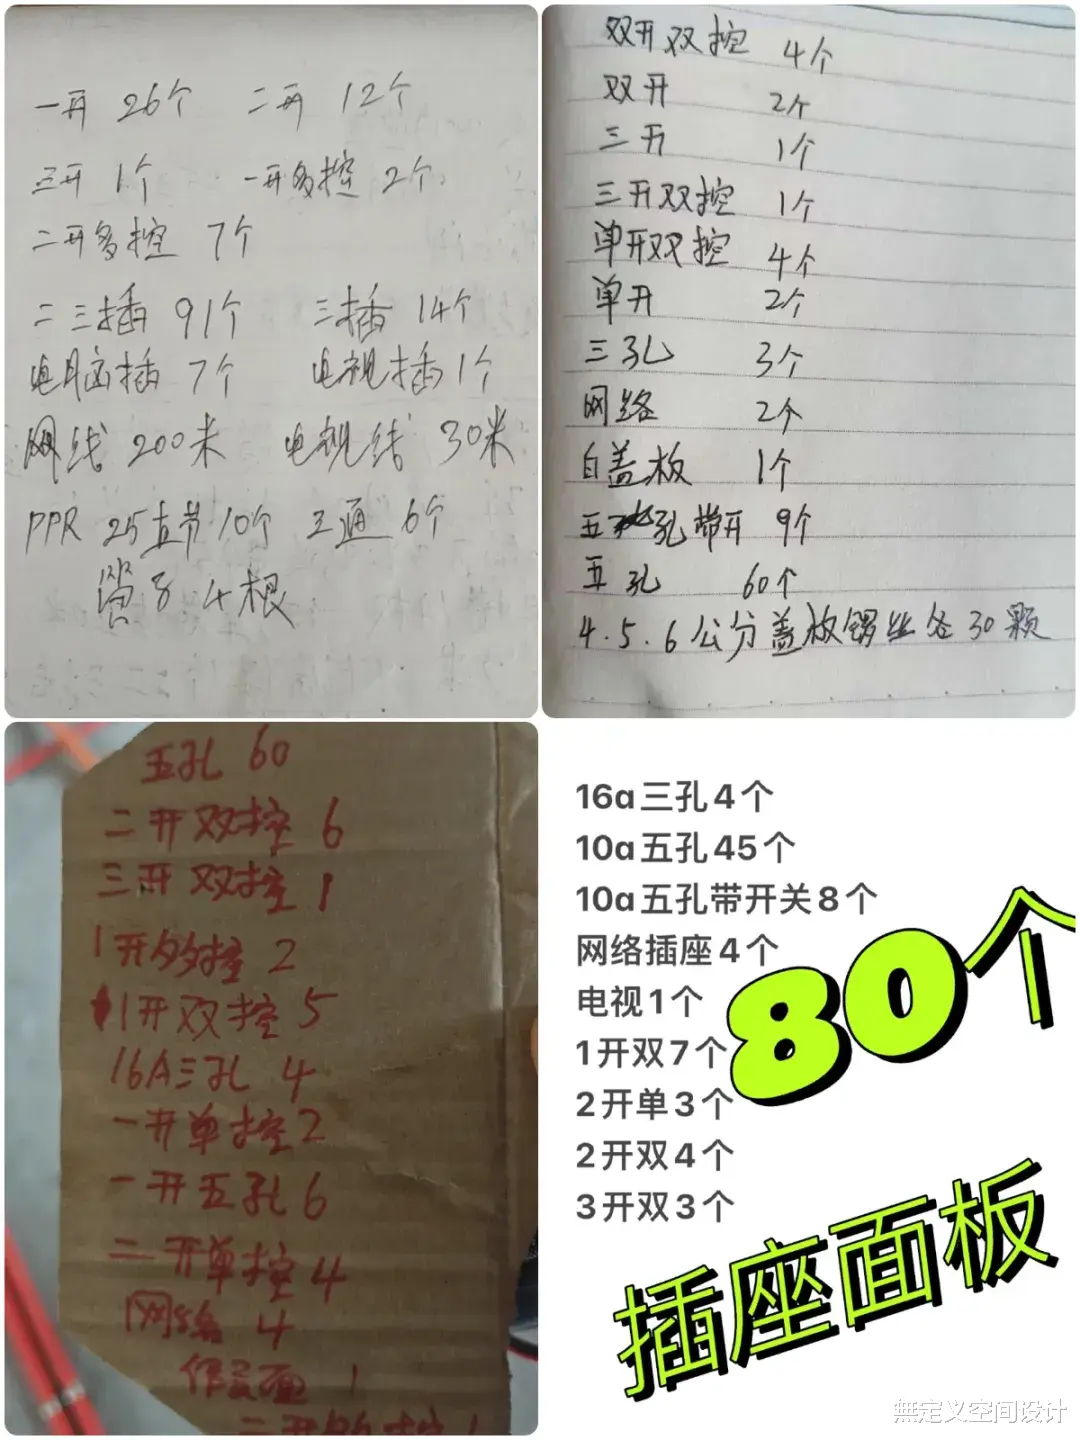 一开 26个 二开 12个
三开 1个 一开多控 2个
二开多控 7个
二三插 91个 三插 14个
电脑插 7个 电视插 1个
网线 200米 电视线 30米
PPR 25直节10个 三通 6个
管子 4根
双开双控 4个
双开 2个
三开 1个
三开双控 1个
单开双控 4个
单开 2个
三孔 3个
网络 2个
白盖板 1个
五孔带开 9个
五孔 60个
4.5.6公分盖板锣丝各30颗
五孔 60
二开双控 6
三开双控 1
1开多控 2
1开双控 5
16A三孔 4
一开单控 2
一开五孔 6
二开单控 4
网络 4
1
二开多控 1
16a三孔4个
10a五孔45个
10a五孔带开关8个
网络插座4个
电视1个
1开双7个
2开单3个
2开双4个
3开双3个
80个
插座面板
無定义空间设计